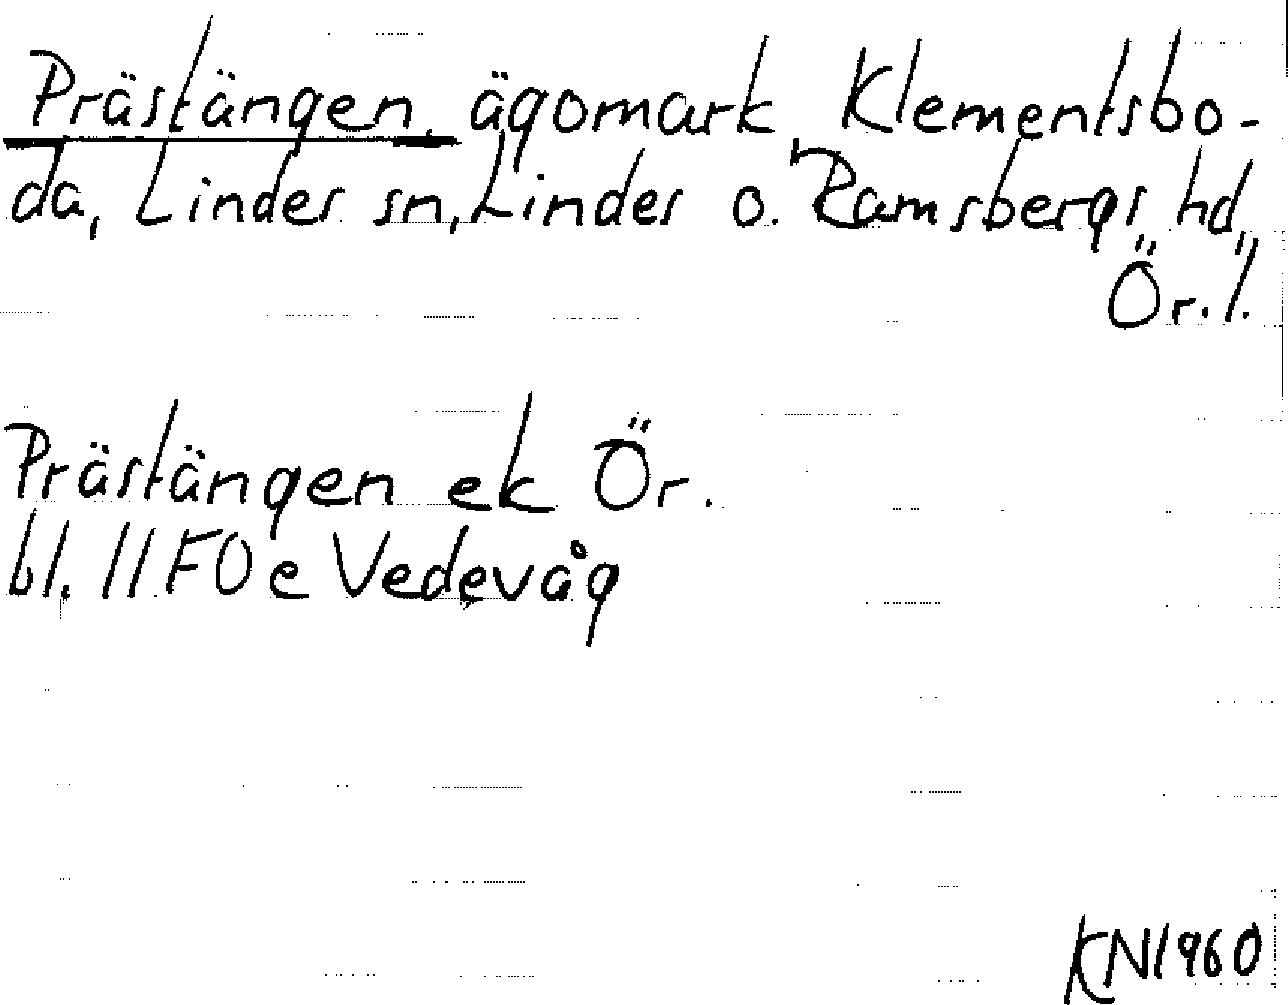 Prästängen, ägomark, Klementsbo-
da, Lindes sn, Lindes o. Ramsbergs hd,
Ör. l.
Prästängen ek Ör.
bl. 11 F 0 e Vedevåg
KN 1960